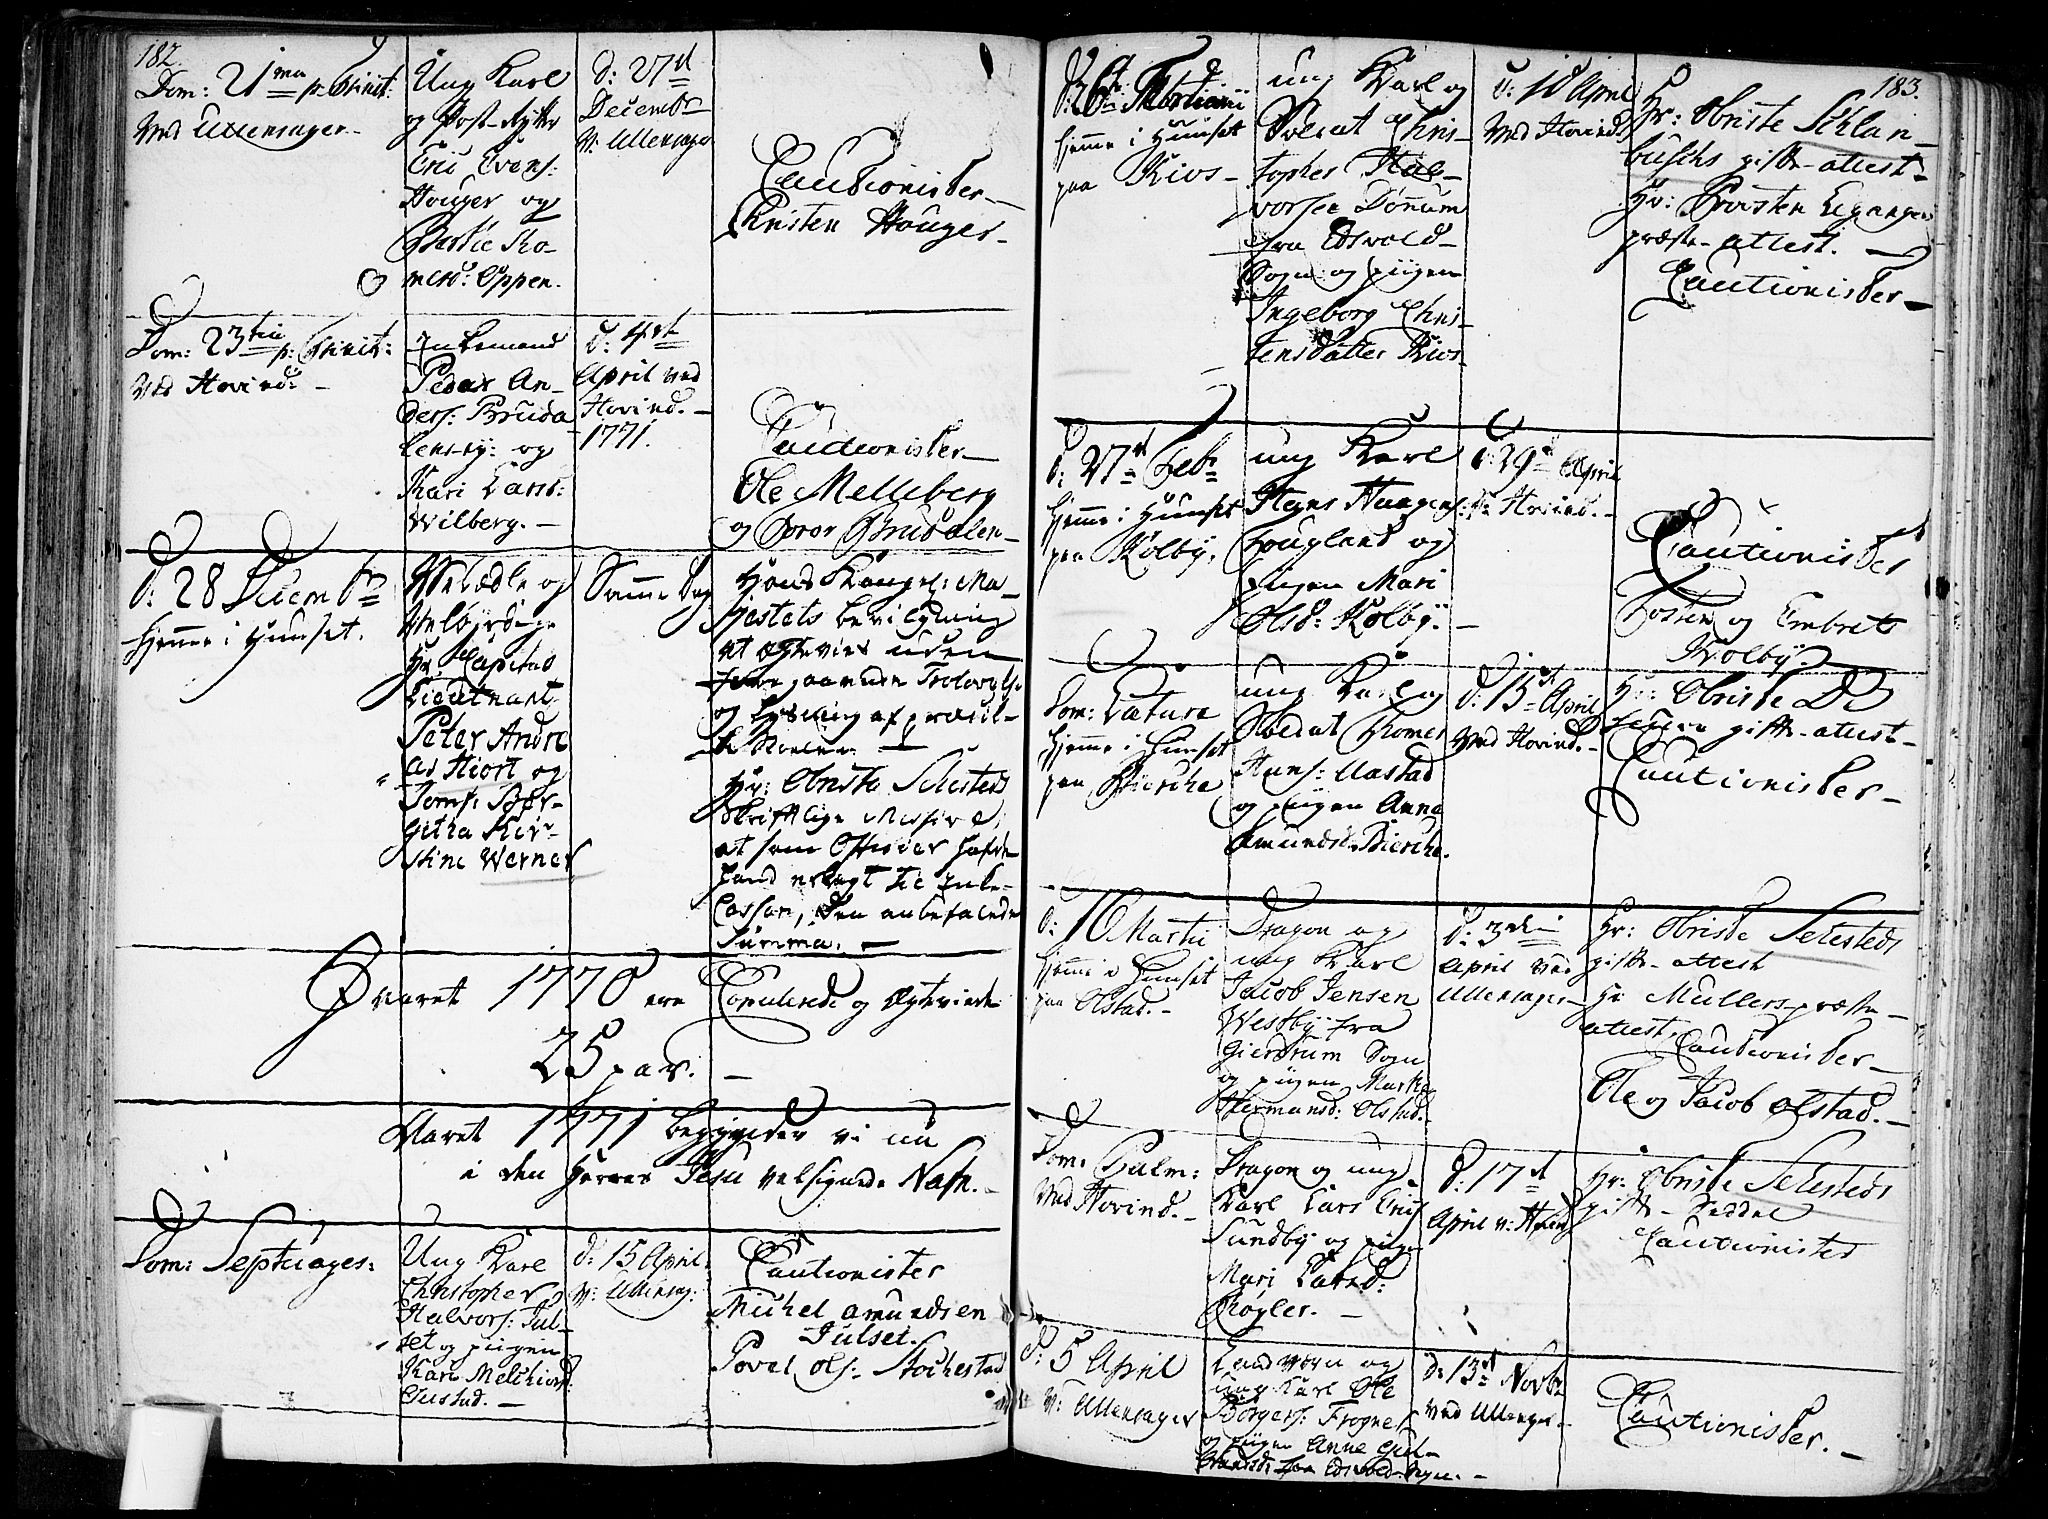 182.
Dom: 21ma p. Trinit:
Ved Ullensager.
Ung Karl
og Post-Rytter
Eric Evens:
Houger og
Barthe Ro-
mersd: Oppen.
d: 27de
Decembr
v: Ullensager
Cautionister
Christen Houger
Dom: 23tia p: Trinit:
Ved Hovind.
Enkemand
Peder An-
ders: Bruda-
lens-ej: og
Kari Larsd:
Wilberg.
d: 4de
April ved
Hovind.
1771.
Cautionister
Ole Melleberg
og Bror Brudalen
d: 28 Decembr
hjemme i Huuset.
Velædle og
Velbyrdige
Hr Capitai
Lieutnant
Peter Andre
as Hiort og
Jomf: Bør-
githa Kir-
stine Werner
Samme Dag
Hans Kongel: Ma-
jestets bevilgning
at Ægtevies uden
foregaaende Trolovelse
og Lysning af prædi-
ke Stoelen
Hr: Obriste Sehesteds
Skriftlige Missive,
at som Officier hafde
hand erlagt til Enke-
Cassan, den anbefalede
Summa.
I Aaret 1770 ere Copulerede og Ægteviede
25 par.
Aaret 1771 begynder vi nu
i den Herres Jesu velsignede Nafn.
Dom: Septuages:
Ung Karl
Christopher
Halvors: Jul-
set og pigen
Kari Melchiorsd:
d: 15 April
v: Ullensag:
Cautionister
Michel Amundsen
Julset.
Povel Ols: Stochestad
183.
hjemme i Huuset
paa Kios
ung Karl og
Soldat Chris-
topher Hal-
vorsen Dønnum
fra Edsvold
Sogn og piigen
Ingeborg Chris-
tensdatter Kios
d: 10 April
Ved Hovind
Hr: Obriste Schlan-
buschs gifte-attest
Hr: Provsten
præste-attest.
Cautionister
d: 27de Febr
hjemme i Huuset
paa Kolby.
ung Karl
Hans Haagens:
Hougland og
pigen Mari
Olsd: Kolby.
d: 29de April
v: Hovind.
Cautionister
Torsten og Embret
Kolby.
Dom: Lætare
hjemme i Huuset
paa Bierche
ung Karl og
Soldat Thomes
Hans: Aastad
og piigen Anne
Amundsd: Bierche.
d: 15de April
Ved Hovind.
Hr: Obriste De
gifte-attest
Cautionister
d: 16 Martii
hjemme i Huuset
paa Olstad.
Dragon og
ung Karl
Jacob Jensen
Westby fra
Gierdrum Sogn
og piigen Marthe
Hermansd: Olstad.
d: 3die
April ved
Ullensager
Hr: Obriste Sehesteds
gifte-attest
Hr Müllers præste-
attest, Cautionister
Ole og Jacob Olstad.
Dom: Palm:
Ved Hovind.
Dragon og ung
Karl Lars Erics:
Sundby og pige
Mari Larsd:
Røgler.
d: 17de
April v: Hovind
Hr: Obriste Sehesteds
gifte-Seddel
Cautionister
d: 5 April
v: Ullensager
Landværn og
ung Karl Ole
Børgers: Frogner
og piigen Anne Gul-
brandsd: fra Edsvold Sogn.
d: 13de Novbr
ved Ullensager
Cautionister.